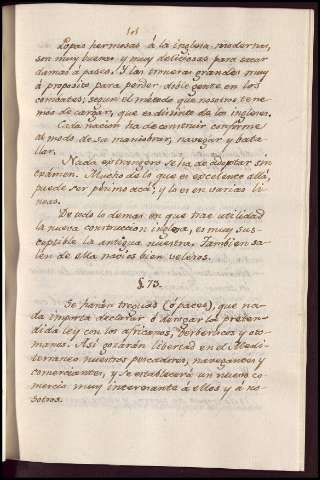 101
Popas hermosas á la inglesa moderna,
son muy buenas y muy deliciosas para sacar
damas á paseo. Y las troneras grandes muy
á proposito para perder doble gente en los
combates, segun el método que nosotros tene-
mos de cargar, que es distinto de los ingleses.
Cada nacion ha de construir conforme
al modo de su maniobrar, navegar y bata-
llar.
Nada extrangero se ha de adoptar sin
exâmen. Mucho de lo que es excelente allá,
puede ser pésimo acá, y lo es en varias lí-
neas.
De todo lo demas en que trae utilidad
la nueva construccion inglesa, es muy sus-
ceptible la antigua nuestra. Tambien sa-
len de ella navios bien veleros.
§ 73.
Se harán treguas (ó paces), que na-
da importa declarar ó derogar la preten-
dida ley con los africanos, berberiscos y oto-
manos. Asi gozarán libertad en el Medi-
terraneo nuestros pescadores, navegantes y
comerciantes, y se establecerá un nuevo co-
mercio muy interesante á ellos y á no-
sotros.